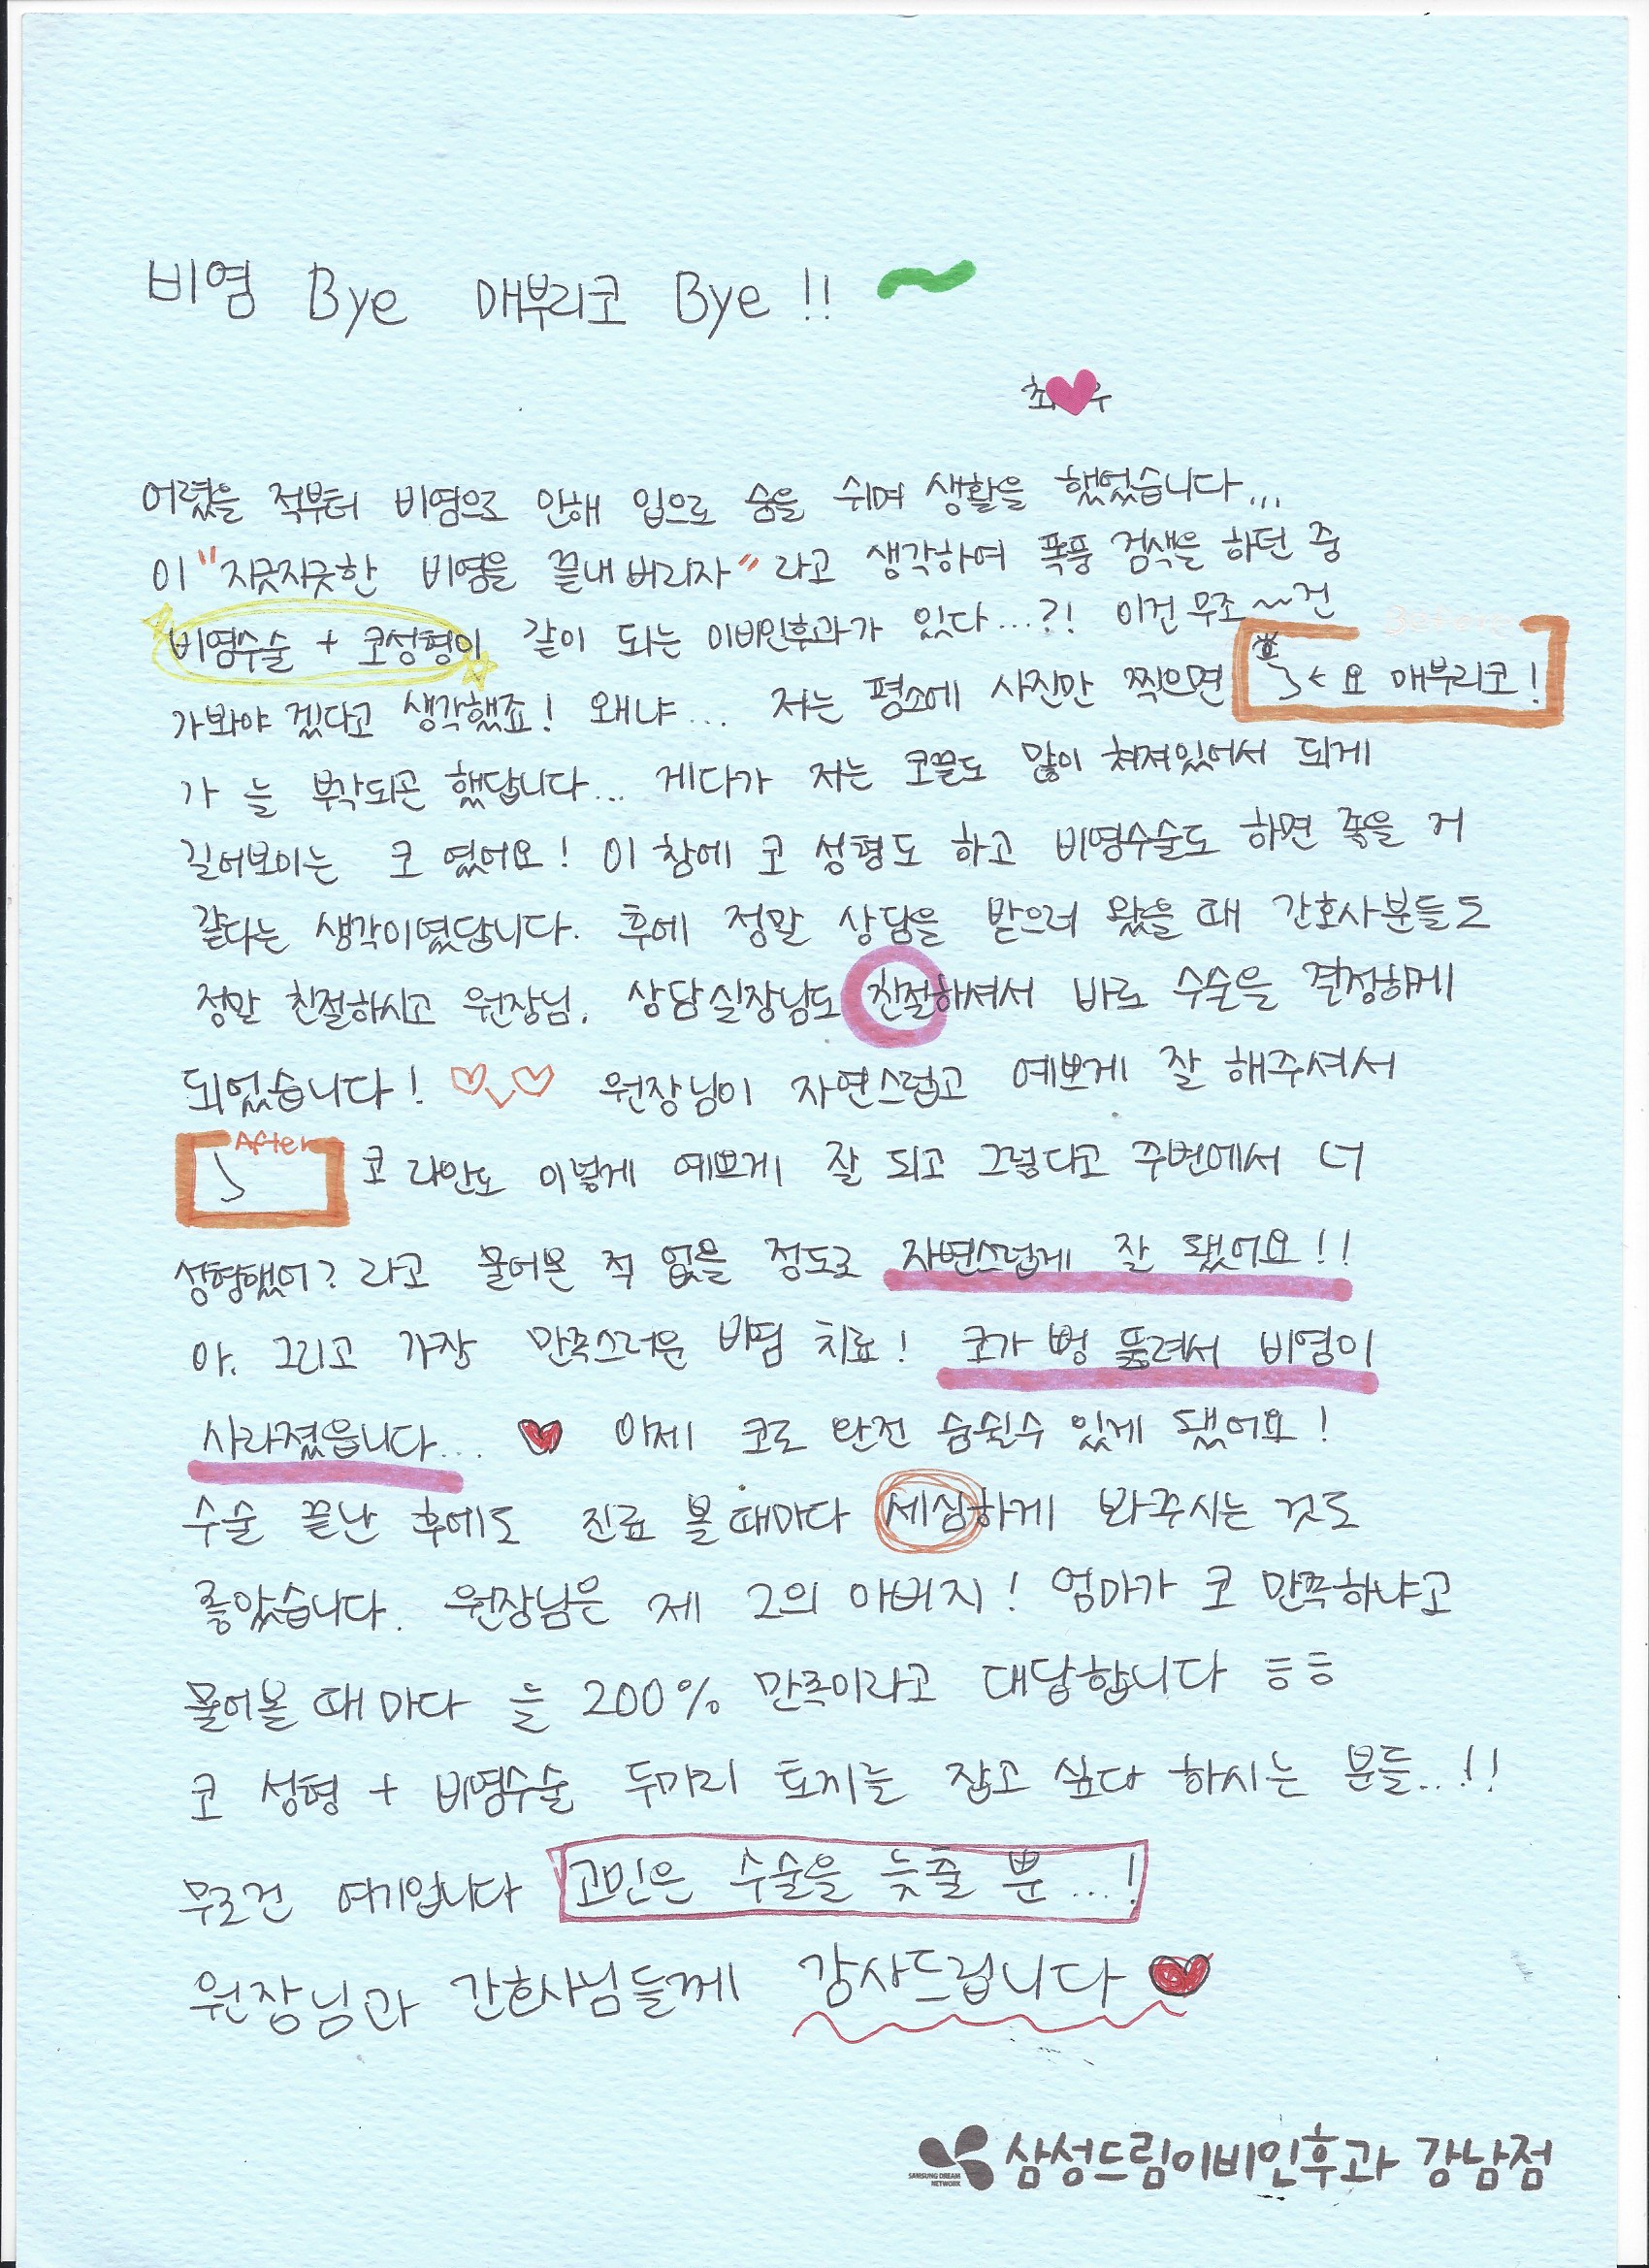 비염 Bye 매부리코 Bye !! ~
최♥우
어렸을 적부터 비염으로 안해 입으로 숨을 쉬며 생활을 했었습니다...
이 "지긋지긋한 비염을 끝내버리자" 라고 생각하여 폭풍 검색을 하던 중
비염수술 + 코성형이 같이 되는 이비인후과가 있다...?! 이건 무조~건
Before
가봐야 겠다고 생각했죠! 왜냐... 저는 평소에 사진만 찍으면 ← 요 매부리코!
가 늘 부각되곤 했답니다... 게다가 저는 코끝도 많이 쳐져있어서 되게
길어보이는 코 였어요! 이 참에 코 성형도 하고 비염수술도 하면 좋을 거
같다는 생각이였답니다. 후에 정말 상담을 받으러 왔을 때 간호사분들도
정말 친절하시고 원장님, 상담실장님도 친절하셔서 바로 수술을 결정하게
되었습니다! ♡.♡ 원장님이 자연스럽고 예쁘게 잘 해주셔서
After 코 라인도 이렇게 예쁘게 잘 되고 그렇다고 주변에서 너
성형했어? 라고 물어본 적 없을 정도로 자연스럽게 잘 됐어요!!
아. 그리고 가장 만족스러운 비염 치료! 코가 뻥 뚫려서 비염이
사라졌읍니다... ♥ 이제 코로 완전 숨쉴수 있게 됐어요!
수술 끝난 후에도 진료 볼 때마다 세심하게 봐주시는 것도
좋았습니다. 원장님은 제 2의 아버지! 엄마가 코 만족하냐고
물어볼 때마다 늘 200% 만족이라고 대답합니다 ㅎㅎ
코 성형 + 비염수술 두마리 토끼를 잡고 싶다 하시는 분들..!!
무조건 여기입니다 고민은 수술을 늦출 뿐...!
원장님과 간호사님들께 감사드립니다 ♥
SAMSUNG DREAM NETWORK 삼성드림이비인후과 강남점